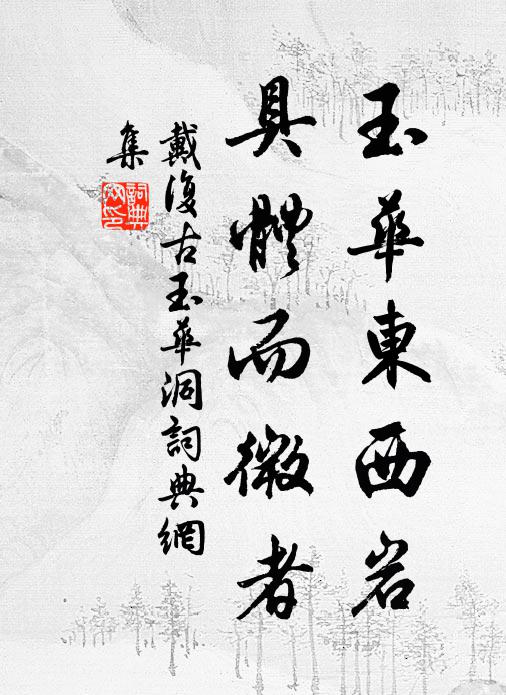 玉華東西岩
具體而微者
戴復古玉華洞詞典網
集
詞典網印